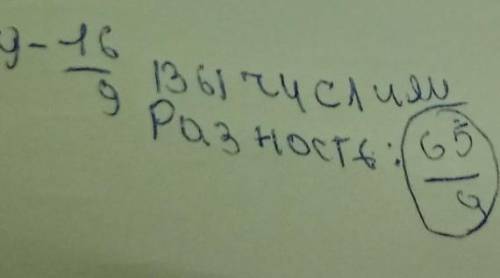 9 - 16/9 Вычислим
Разность: 65/9